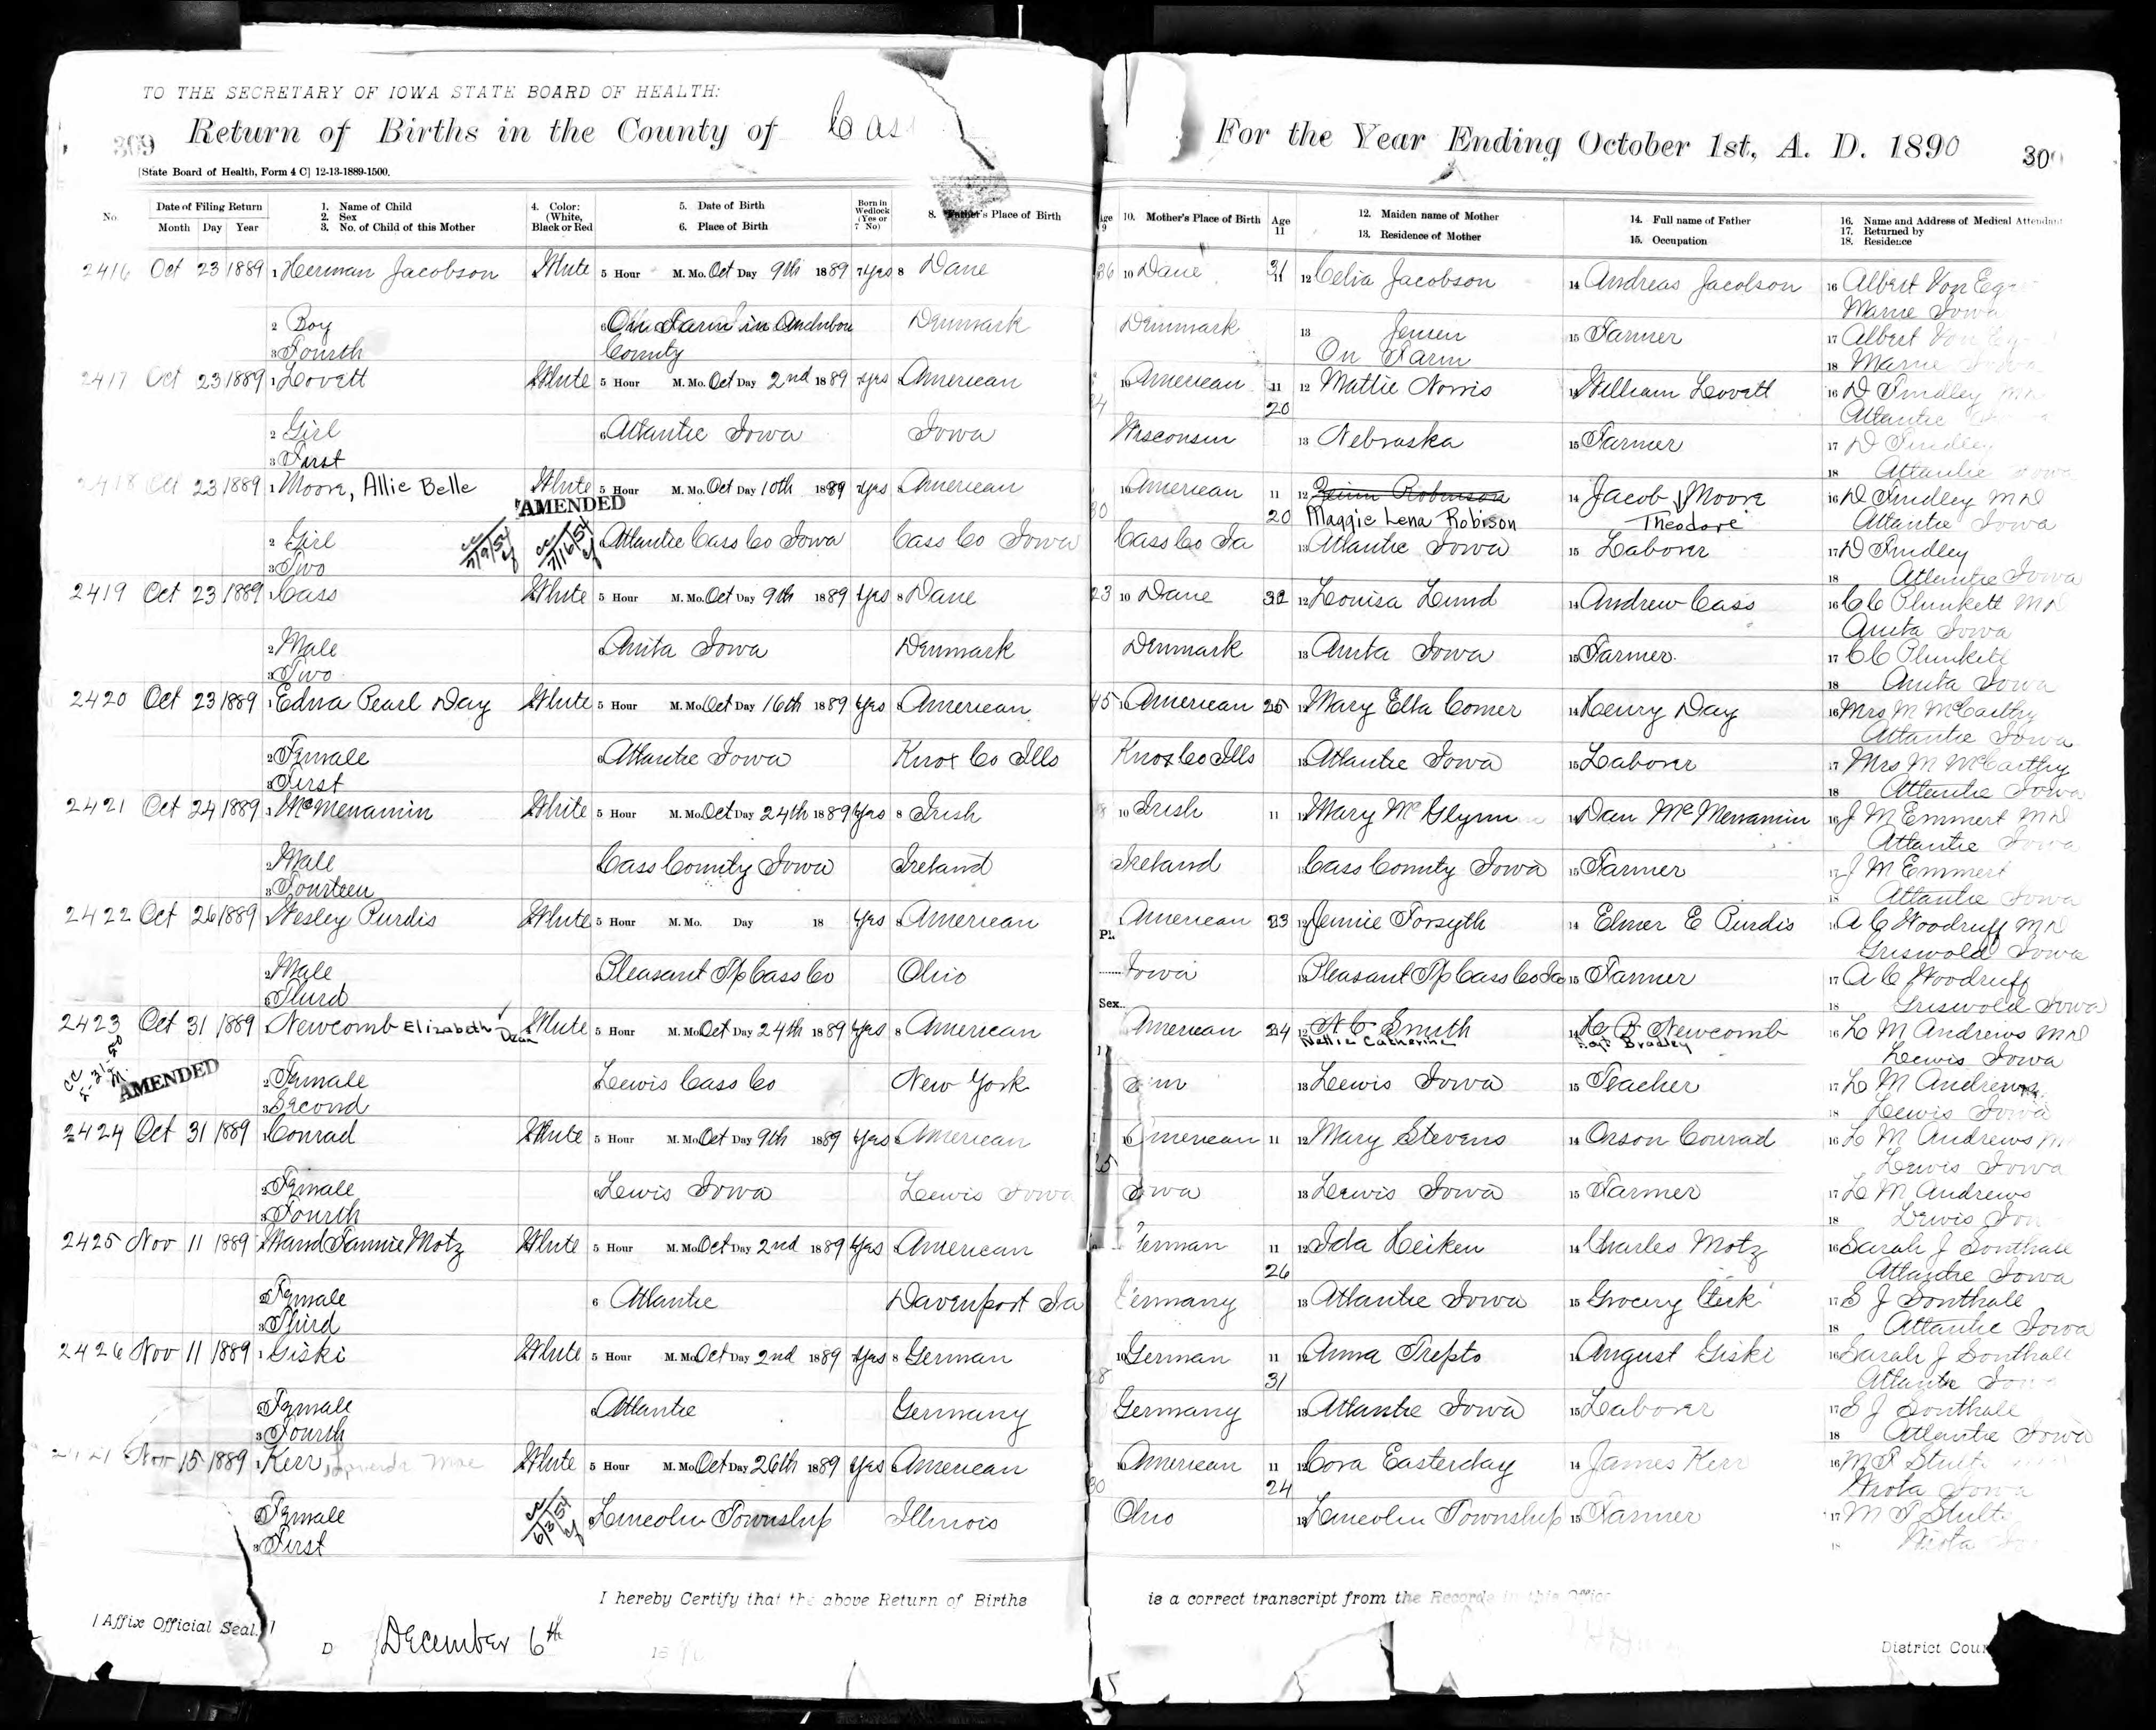 TO THE SECRETARY OF IOWA STATE BOARD OF HEALTH:
309 Return of Births in the County of Cas
For the Year Ending October 1st, A. D. 1890 30
[State Board of Health, Form 4 C] 12-13-1889-1500.
No. Date of Filing Return Month Day Year
1. Name of Child
2. Sex
3. No. of Child of this Mother
4. Color: (White, Black or Red
5. Date of Birth
6. Place of Birth
Born in Wedlock (Yes or 7 No)
8. Father's Place of Birth
Age 9
10. Mother's Place of Birth
Age 11
12. Maiden name of Mother
13. Residence of Mother
14. Full name of Father
15. Occupation
16. Name and Address of Medical Attendant
17. Returned by
18. Residence
2416 Oct 23 1889 1 Herman Jacobson 4 White 5 Hour M. Mo. Oct Day 9th 1889 7 Yes 8 Dane 36 10 Dane 31 11 12 Celia Jacobson 14 Andreas Jacobson 16 Albert Von
Marne Iowa
2 Boy 6 On Farm in Audubon Denmark Denmark 13 Jensen 15 Farmer 17 Albert
3 Fourth County On Farm 18 Marne Iowa
2417 Oct 23 1889 1 Lovett White 5 Hour M. Mo. Oct Day 2nd 1889 yes American 10 American 11 12 Mattie Norris William Lovett 16 D Findley MD
20 Atlantic
2 Girl 6 Atlantic Iowa Iowa Wisconsin 13 Nebraska 15 Farmer 17 D Findley
3 First 18 Atlantic Iowa
2418 Oct 23 1889 1 Moore, Allie Belle White 5 Hour M. Mo. Oct Day 10th 1889 yes American 10 American 11 12 Robinson 14 Jacob Moore 16 D Findley MD
AMENDED 30 20 Maggie Lena Robison Theodore Atlantic Iowa
2 Girl Atlantic Cass Co Iowa Cass Co Iowa Cass Co Ia 13 Atlantic Iowa 15 Laborer 17 D Findley
3 Two 18 Atlantic Iowa
2419 Oct 23 1889 1 Cass White 5 Hour M. Mo. Oct Day 9th 1889 Yes 8 Dane 23 10 Dane 32 12 Louisa Lund 14 Andrew Cass 16 C C Plunkett MD
Anita Iowa
2 Male 6 Anita Iowa Denmark Denmark 13 Anita Iowa 15 Farmer 17 C C Plunkett
3 Two 18 Anita Iowa
2420 Oct 23 1889 1 Edna Pearl Day White 5 Hour M. Mo. Oct Day 16th 1889 Yes 8 American 45 American 25 12 Mary Etta Comer 14 Henry Day 16 Mrs M McCarthy
Atlantic Iowa
2 Female 6 Atlantic Iowa Knox Co Ills Knox Co Ills 13 Atlantic Iowa 15 Laborer 17 Mrs M McCarthy
3 First 18 Atlantic Iowa
2421 Oct 24 1889 1 McMenamin White 5 Hour M. Mo. Oct Day 24th 1889 Yes 8 Irish 10 Irish 11 12 Mary McGlynn 14 Dan McMenamin 16 J M Emmert MD
Atlantic Iowa
2 Male Cass County Iowa Ireland Ireland Cass County Iowa 15 Farmer 17 J M Emmert
3 Fourteen 18 Atlantic Iowa
2422 Oct 26 1889 Wesley Purdis White 5 Hour M. Mo. Day 18 Yes 8 American American 23 12 Jennie Forsyth 14 Elmer E Purdis 16 A C Woodruff MD
Pl. Griswold Iowa
2 Male Pleasant Tp Cass Co Ohio Iowa 13 Pleasant Tp Cass Co Ia 15 Farmer 17 A C Woodruff
3 Third Sex.. 18 Griswold Iowa
2423 Oct 31 1889 Newcomb Elizabeth Dean White 5 Hour M. Mo. Oct Day 24th 1889 Yes 8 American American 24 12 N C Smith 14 H B Newcomb 16 L M Andrews MD
Nellie Catherine Bradley Lewis Iowa
AMENDED 2 Female 6 Lewis Cass Co New York 13 Lewis Iowa 15 Teacher 17 L M Andrews
3 Second 18 Lewis Iowa
2424 Oct 31 1889 1 Conrad White 5 Hour M. Mo. Oct Day 9th 1889 Yes American 10 American 11 12 Mary Stevens 14 Orson Conrad 16 L M Andrews M
Lewis Iowa
2 Female 6 Lewis Iowa Lewis Iowa Iowa 13 Lewis Iowa 15 Farmer 17 L M Andrews
3 Fourth 18 Lewis Iow
2425 Nov 11 1889 Maud Fannie Motz White 5 Hour M. Mo. Oct Day 2nd 1889 Yes 8 American German 11 12 Ida Heiken 14 Charles Motz 16 Sarah J Southall
26 Atlantic Iowa
2 Female 6 Atlantic Davenport Ia Germany 13 Atlantic Iowa 15 Grocery Clerk 17 S J Southall
3 Third 18 Atlantic Iowa
2426 Nov 11 1889 1 Giski White 5 Hour M. Mo. Oct Day 2nd 1889 Yes 8 German 10 German 11 12 Anna Trepto 14 August Giski 16 Sarah J Southall
31 Atlantic Iowa
2 Female 6 Atlantic Germany Germany 13 Atlantic Iowa 15 Laborer 17 S J Southall
3 Fourth 18 Atlantic Iowa
Nov 15 1889 1 Kerr Mae White 5 Hour M. Mo. Oct Day 26th 1889 Yes 8 American 10 American 11 12 Cora Easterday 14 James Kerr 16 M
30 24 Wiota Iowa
2 Female 6 Lincoln Township Illinois Ohio 13 Lincoln Township 15 Farmer 17 M
3 First 18 Wiota
I hereby Certify that the above Return of Births is a correct transcript from the Records in this Office
[Affix Official Seal.]
D December 6th
District Cour